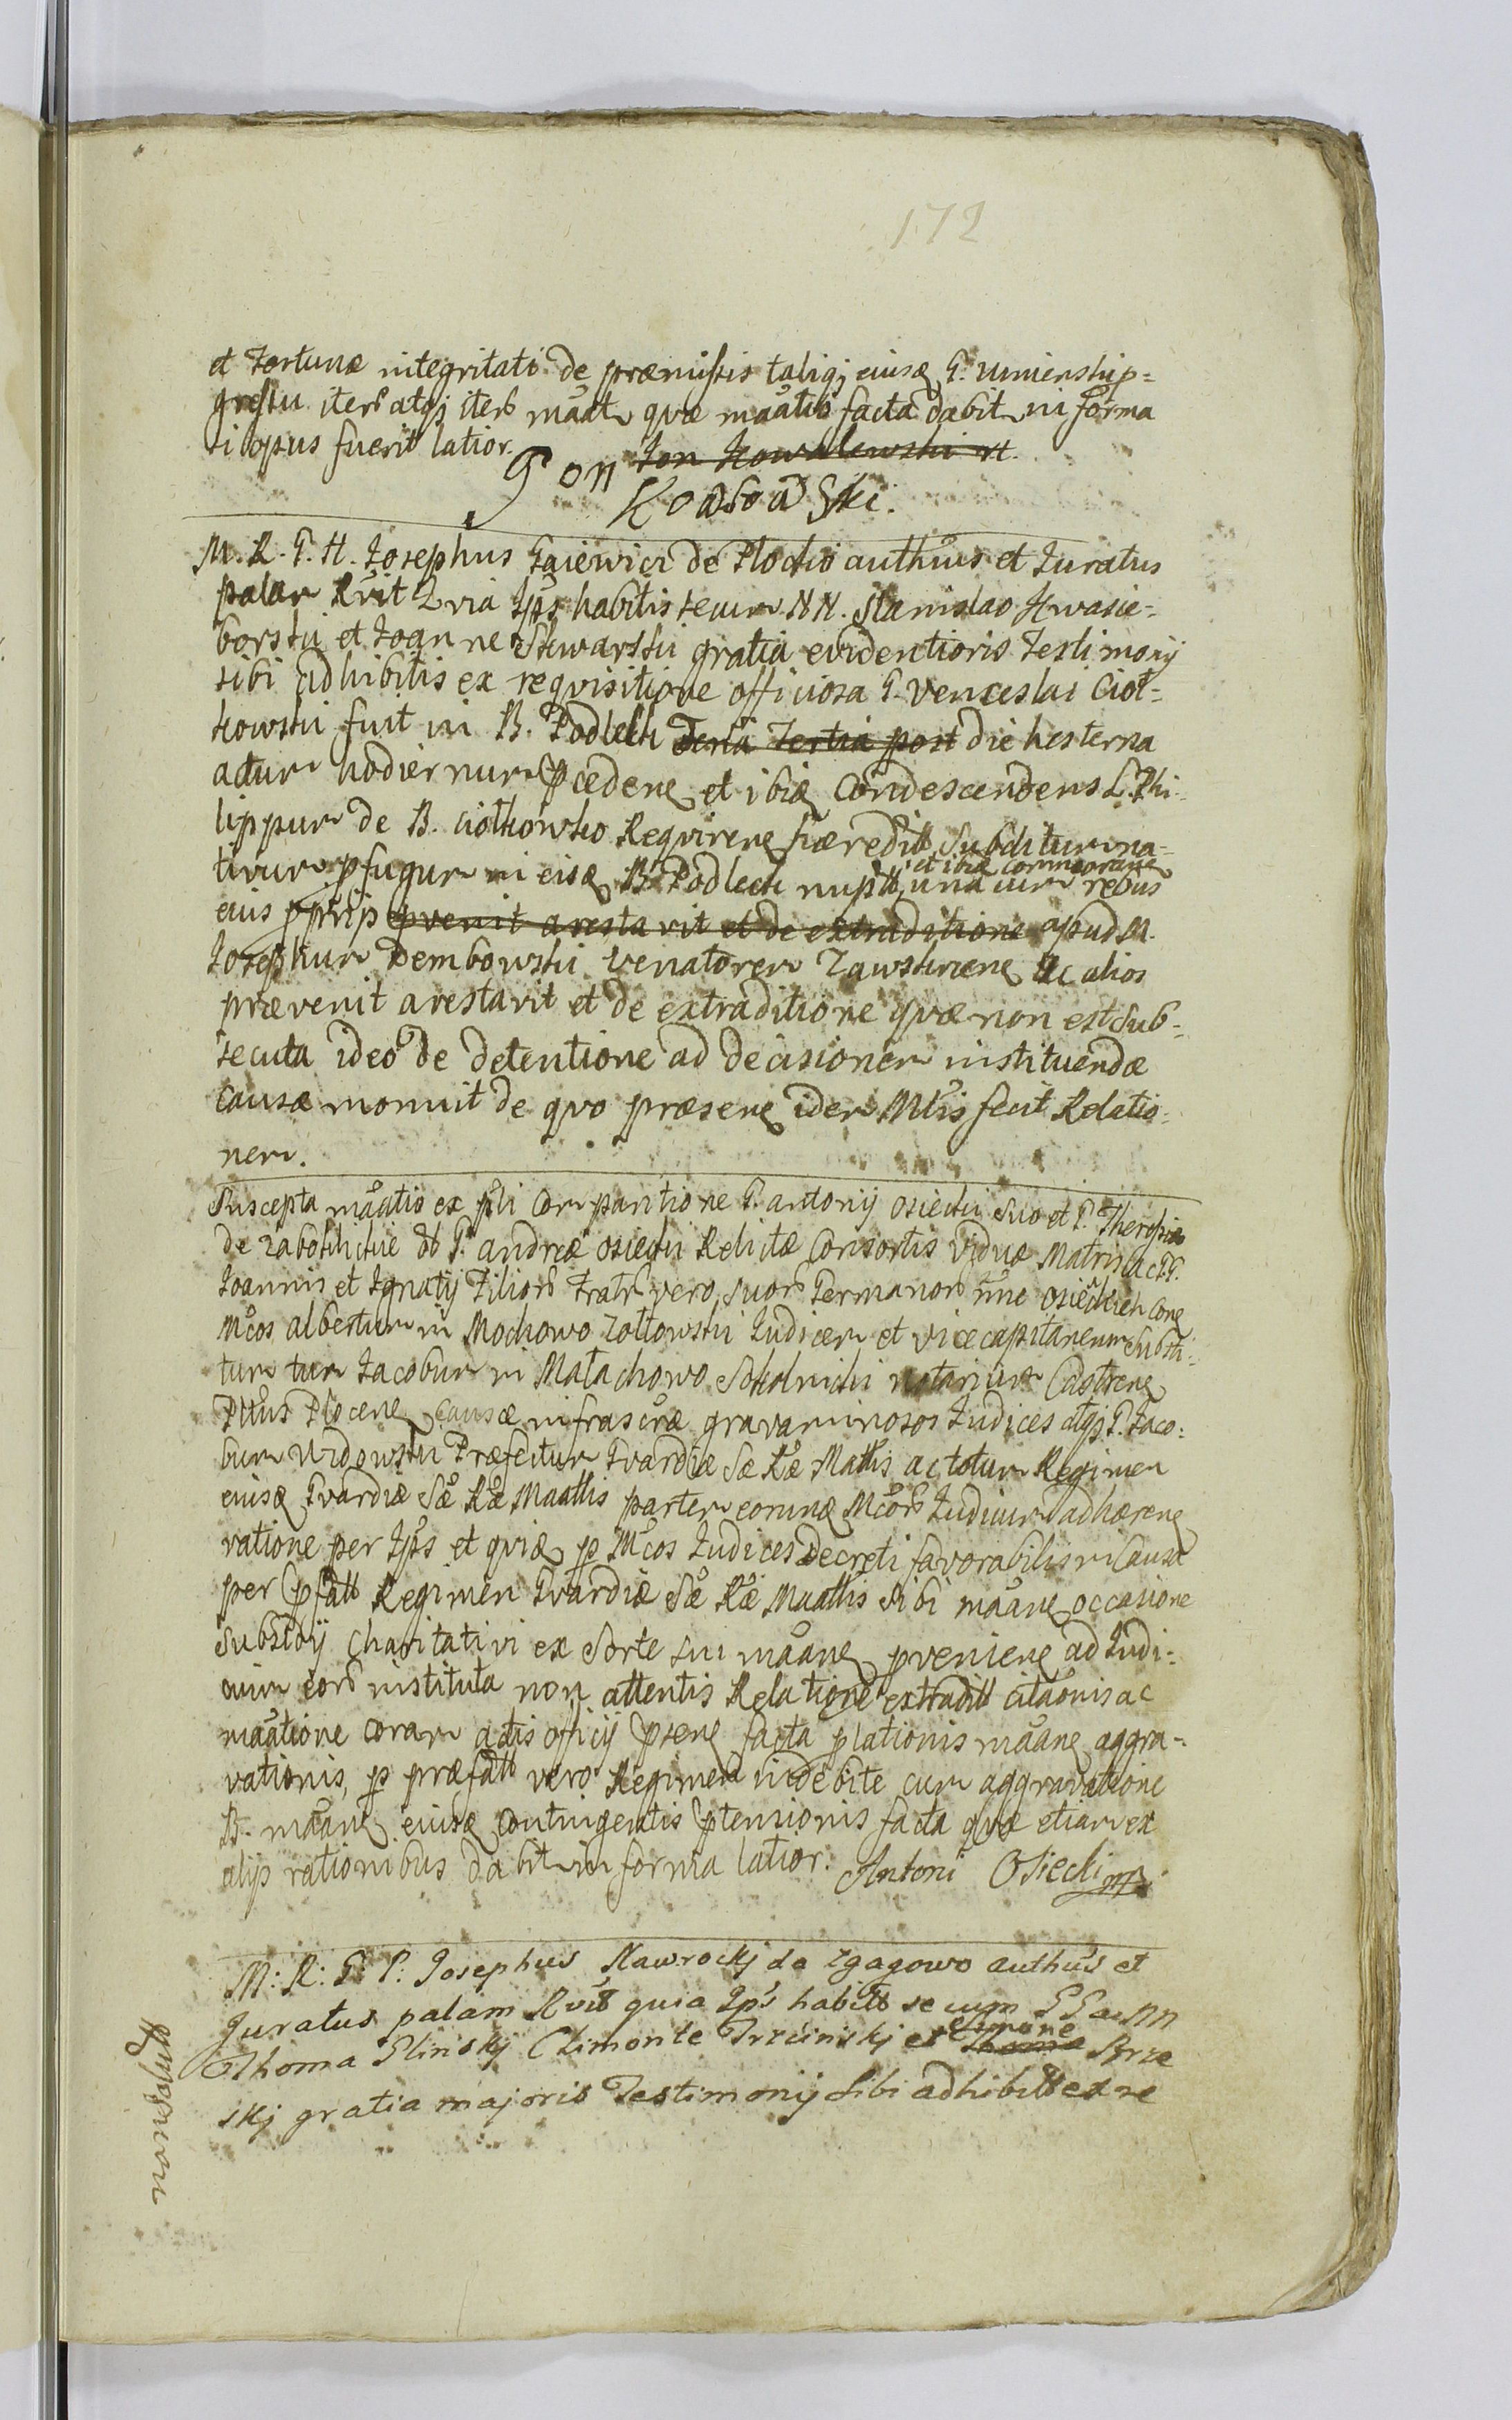 172
et Fortunæ integritati de præmissis taliqj eiusq G. Umienskip=
gressu iterb atqj iterb māāt quæ māātio facta dabit in forma
si opus fuerit latior. Jon Jon Kowalewski
Kowalowski.
M. R. G. H. Josephus Gaiewici de Plochio authus et Juratus
palam Rvit Quia Ips habitis secum NN. Stanislao Kwasie=
borski et Joanne Skwarski gratia evidentioris Testimonij
sibi adhibitis ex reqvisitione officiosa G. Venceslai Ciot=
kowski fuit in B. Podlecki Feria Tertia post die hesterna
actum hodiernum pcedene et ibiq condescendens L. Phi=
lippum de B. Ciotkowsko Reqvirene hæredit subditum na=
tivum pfugum in eisq B. Podlecki nupr et ibiq commorane una cum rebus
eius pprijs pvenit arestavit et de extraditione apud M.
Josephum Dembowski Venatorem Zawskrzene Ac alios
prævenit arestavit et de extraditione quæ non est sub=
secuta ideo de detentione ad decisionem instituendæ
causæ monuit de qvo præsene idem Mlis fecit Relatio=
nem.
Suscepta māātio ex psli Comparitione G. Antonij Osiecki suo et G. Theresiæ
de Zaboklickie olb G. Andreæ Osiecki Relictæ Consortis Viduæ Matris ac GG.
Joannis et Ignatij Filiorb Fratrb vero suorb Germanorb nne Osieckich cone
Mcos Albertum in Mochowo Zoltowski Judicem et vicecapitaneum substi=
tutum tum Jacobum in Malachowo Sokolnicki notarium Castrene
Pttus Plocene causæ infrascræ gravaminosos Judices atqj G. Jaco=
bum Widowski Præfectum Gvardiæ Sæ Ræ Mattis ac totum Regimen
eiusq Gvardiæ Sæ Ræ Maattis partem eorumq Mcorb Judicum adhærene
ratione per Ips et qviq p Mcos Judices decreti favorabilis in Causa
per pfatt Regimen Gvardiæ Sæ Ræ Maattis sibi māāne occasione
Subsidij Charitativi ex Sorte sui māāne pveniene ad Judi=
cium eorb instituta non attentis Relatione extradit citāōnis ac
māātione coram actis officij psene facta platio̅nis māāne aggra=
vationis, p præfatt vero Regimen indebite cum aggravatione
B. māāne eiusq contingentis ptensionis facta quæ etiam ex
alijs rationibus dabit in forma latior. Antoni Osiecki mp
M: R: G: P: Josephus Nawrockj de Zgagowo authus et
Juratus palam Rvit quia Ips habitt secum GG ac NN
Thoma Glinskj Climonte Trzcinskj et Thoma Simone Brze
skj gratia majoris Testimonij sibi adhibitt ex re